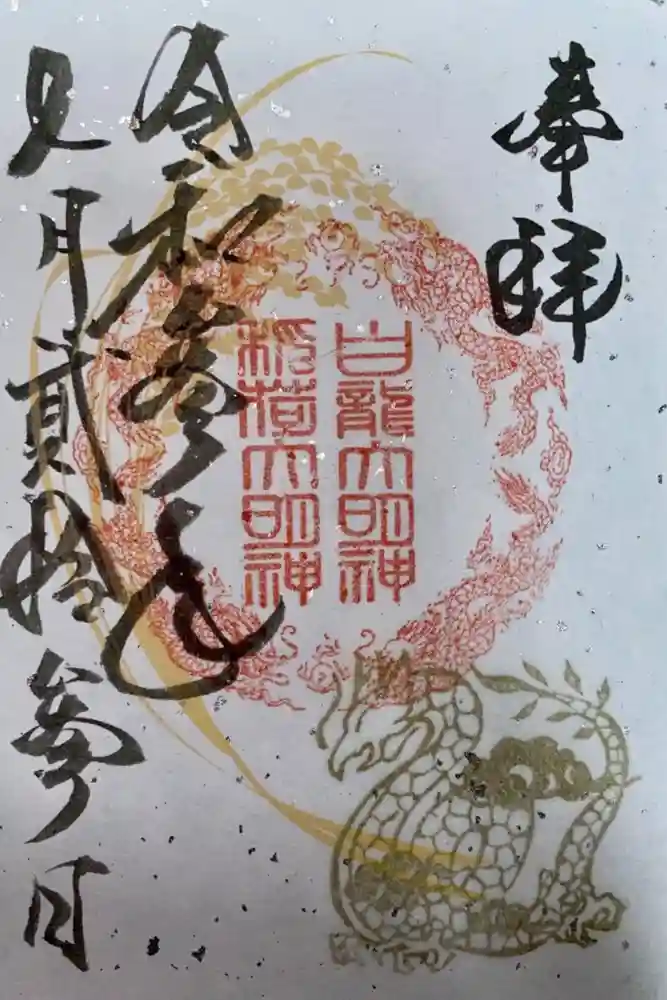 奉拝
白龍大明神
稲荷大明神
令和参年
月貮拾参日